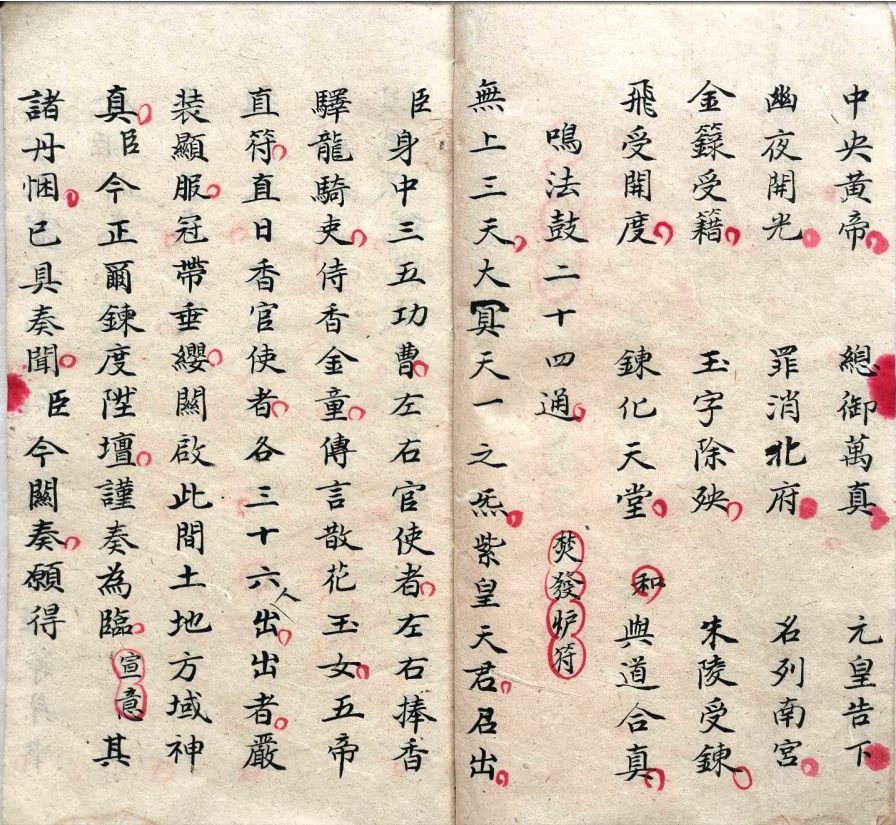 中央黃帝 總御萬真 元皇告下
幽夜開光 罪消北府 名列南宮
金籙受籍 玉字除殃 朱陵受鍊
飛受開度 鍊化天堂 和與道合真
鳴法鼓二十四通 焚發炉符
無上三天大真天一之炁紫皇天君召出
臣身中三五功曹左右官使者左右捧香
驛龍騎吏侍香金童傳言散花玉女五帝
直符直日香官使者各三十六人出出者嚴
装顯服冠帶垂纓關啟此間土地方域神
真臣今正爾鍊度陞壇謹奏為臨宣意其
諸丹悃已具奏聞臣今關奏願得